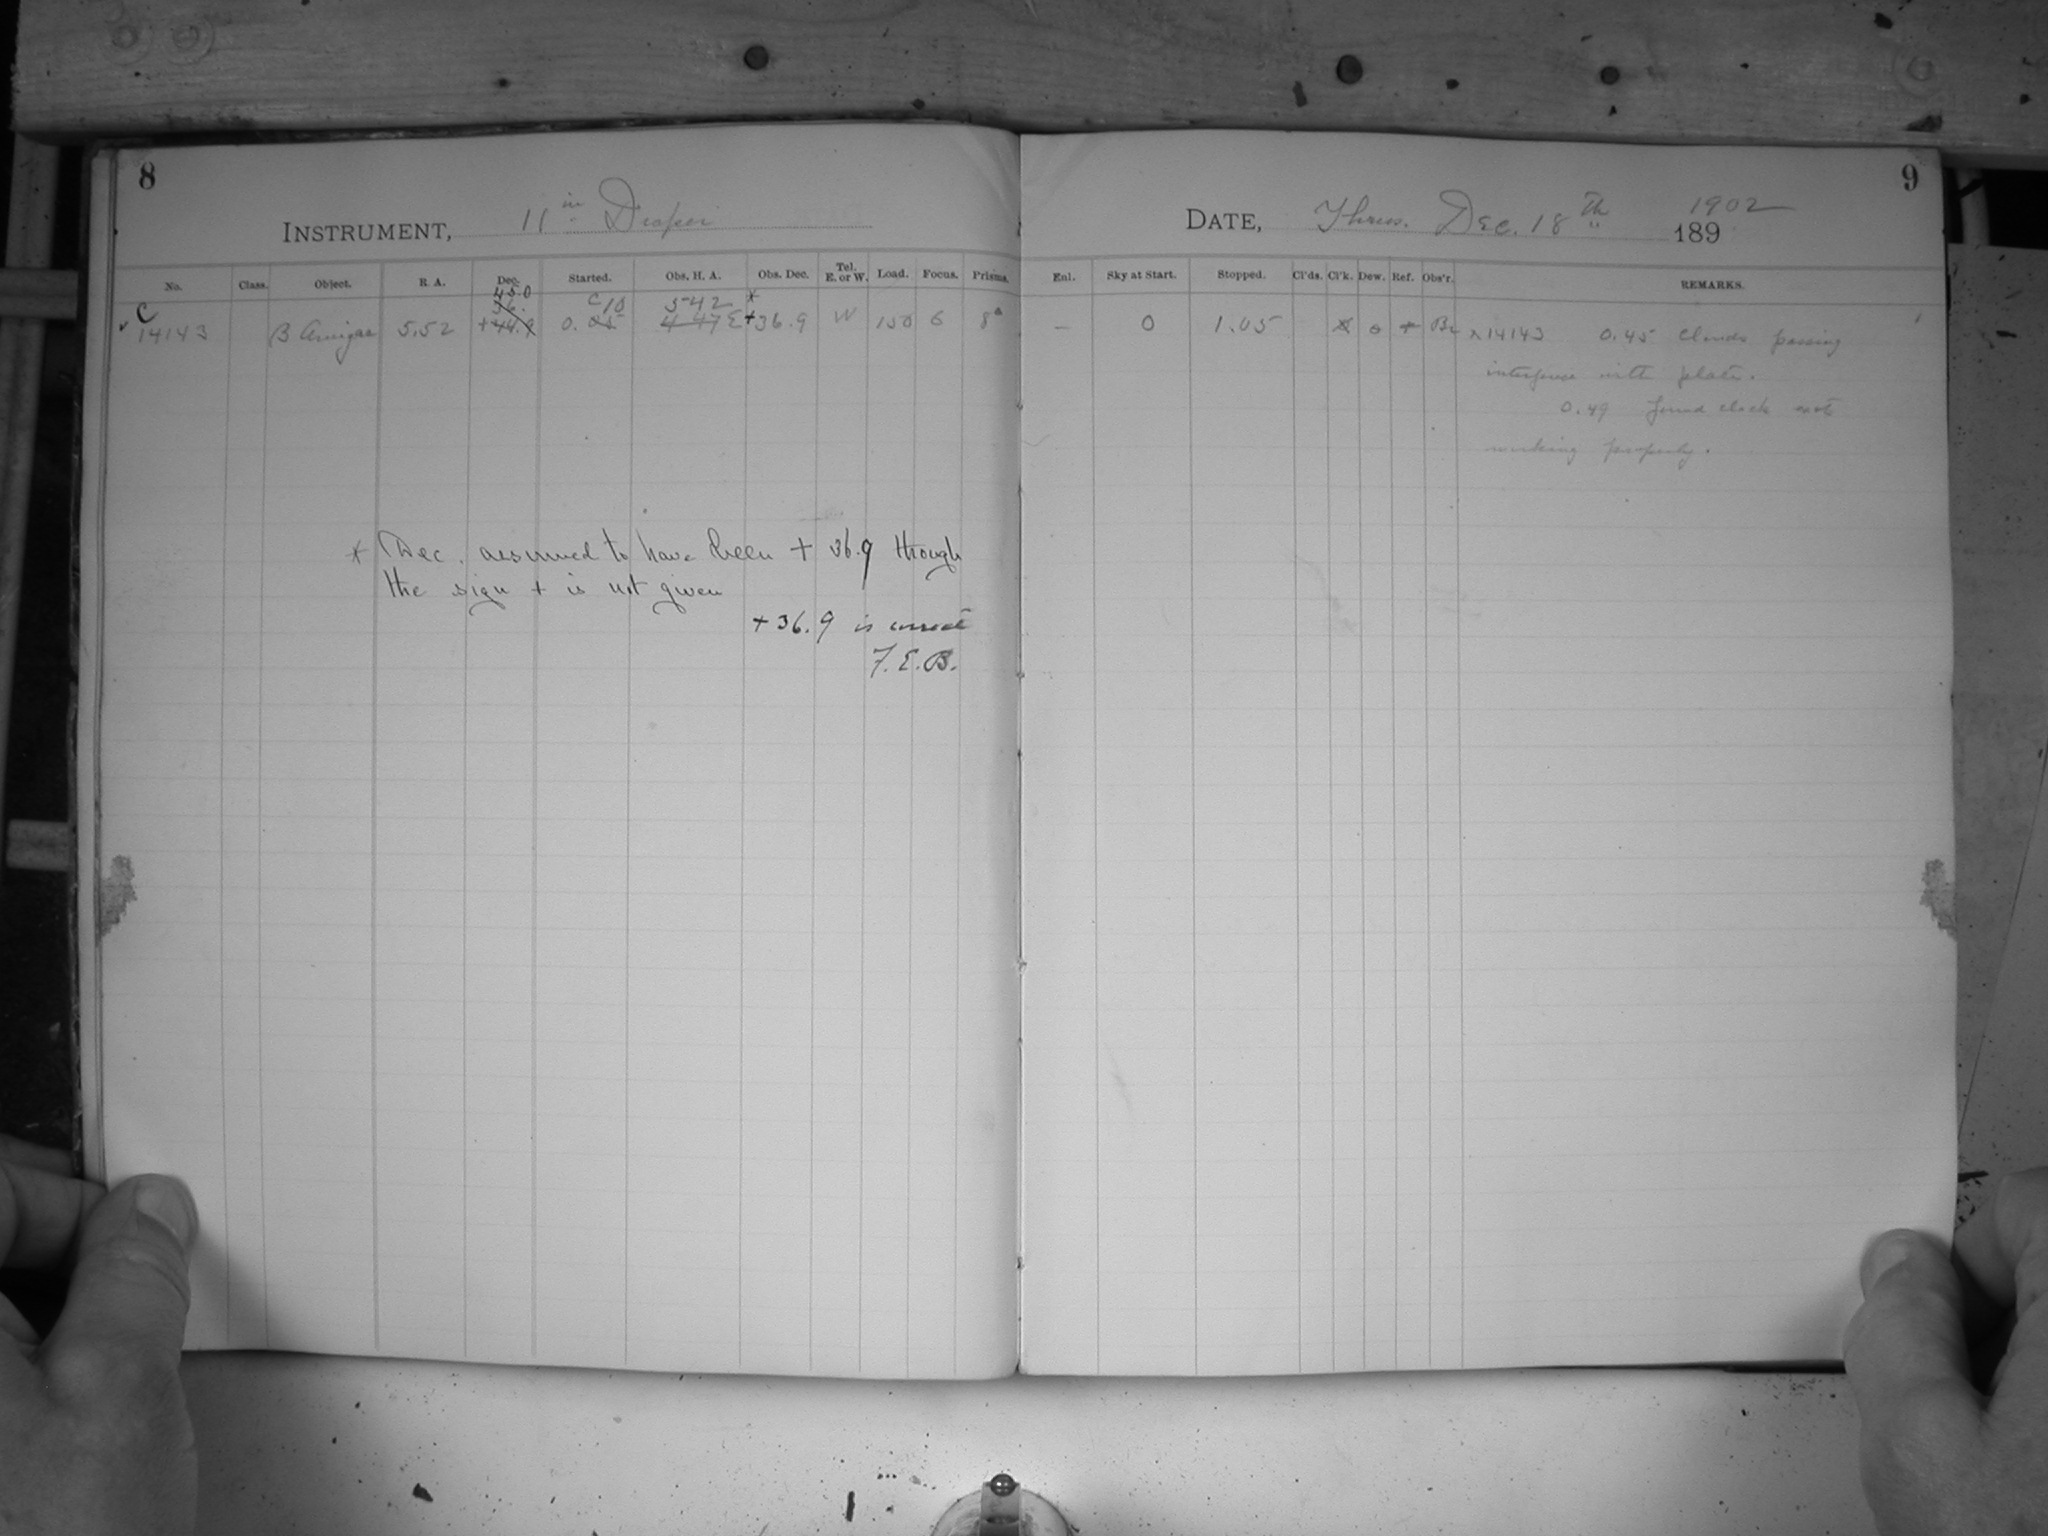 8
INSTRUMENT, 11 in Draper
No. Class. Object. R. A. Dec. Started. Obs. H. A. Obs. Dec. Tel. E. or W. Load. Focus. Prisms.
45.0
36. C 10 5 42 *
C 14143 B Aurigae 5.52 +44.9 0. 05 4 47 E +36.9 W 150 6 8a
* Dec. assumed to have been + 36.9 though
the sign + is not given
+36.9 is correct
F. E. B.
9
DATE, Thurs. Dec. 18th 1902
189
Enl. Sky at Start. Stopped. Cl'ds. Cl'k. Dew. Ref. Obs'r. REMARKS.
— 0 1.05 x 0 + Br x14143 0.45 Clouds passing
interfence with plate.
0.49 found clock not
working properly.